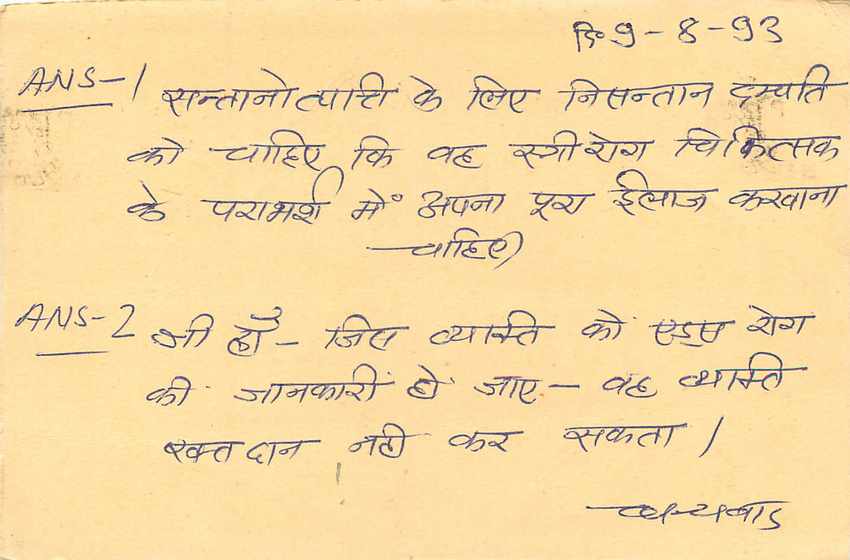 दि॰ 9-8-93
ANS-1 सन्तानोत्पात्ति के लिए निसन्तान दम्पति
को चाहिए कि वह स्त्रीरोग चिकित्सक
के परामर्श में अपना पूरा ईलाज करवाना
चाहिए)
ANS-2 जी हाँ - जिस व्यक्ति को एड्स रोग
की जानकारी हो जाए - वह व्यक्ति
रक्तदान नही कर सकता /
धन्यबाद